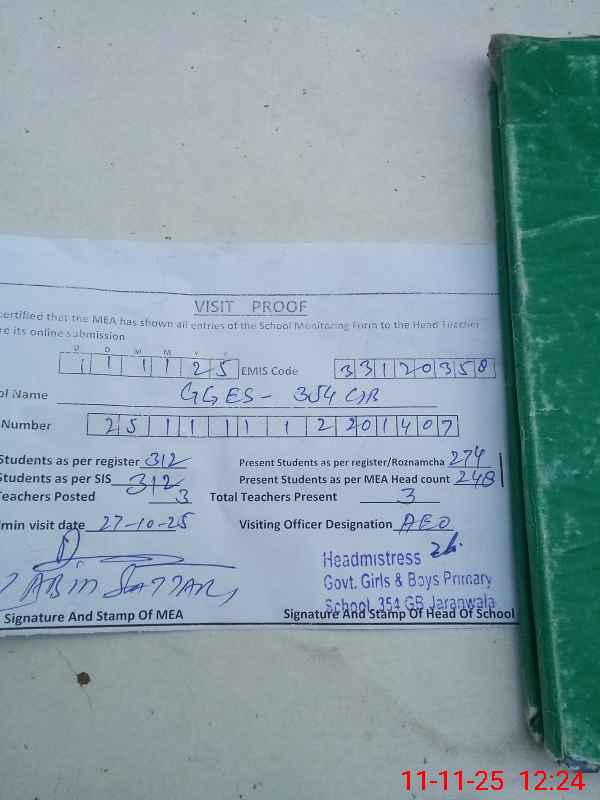 VISIT PROOF
ertified that the MEA has shown all entries of the School Monitoring Form to the Head Teacher
re its online submission
D D M M Y Y
1 1 1 1 2 5 EMIS Code 3 3 1 2 0 3 5 8
ol Name GGES - 354 GB
Number 2 5 1 1 1 1 1 2 2 0 1 4 0 7
Students as per register 312 Present Students as per register/Roznamcha 274
Students as per SIS 312 Present Students as per MEA Head count 248
Teachers Posted 3 Total Teachers Present 3
dmin visit date 27-10-25 Visiting Officer Designation AEO
Headmistress
Govt. Girls & Boys Primary
School 354 GB Jaranwala
SATTAR
Signature And Stamp Of MEA Signature And Stamp Of Head Of School
11-11-25 12:24